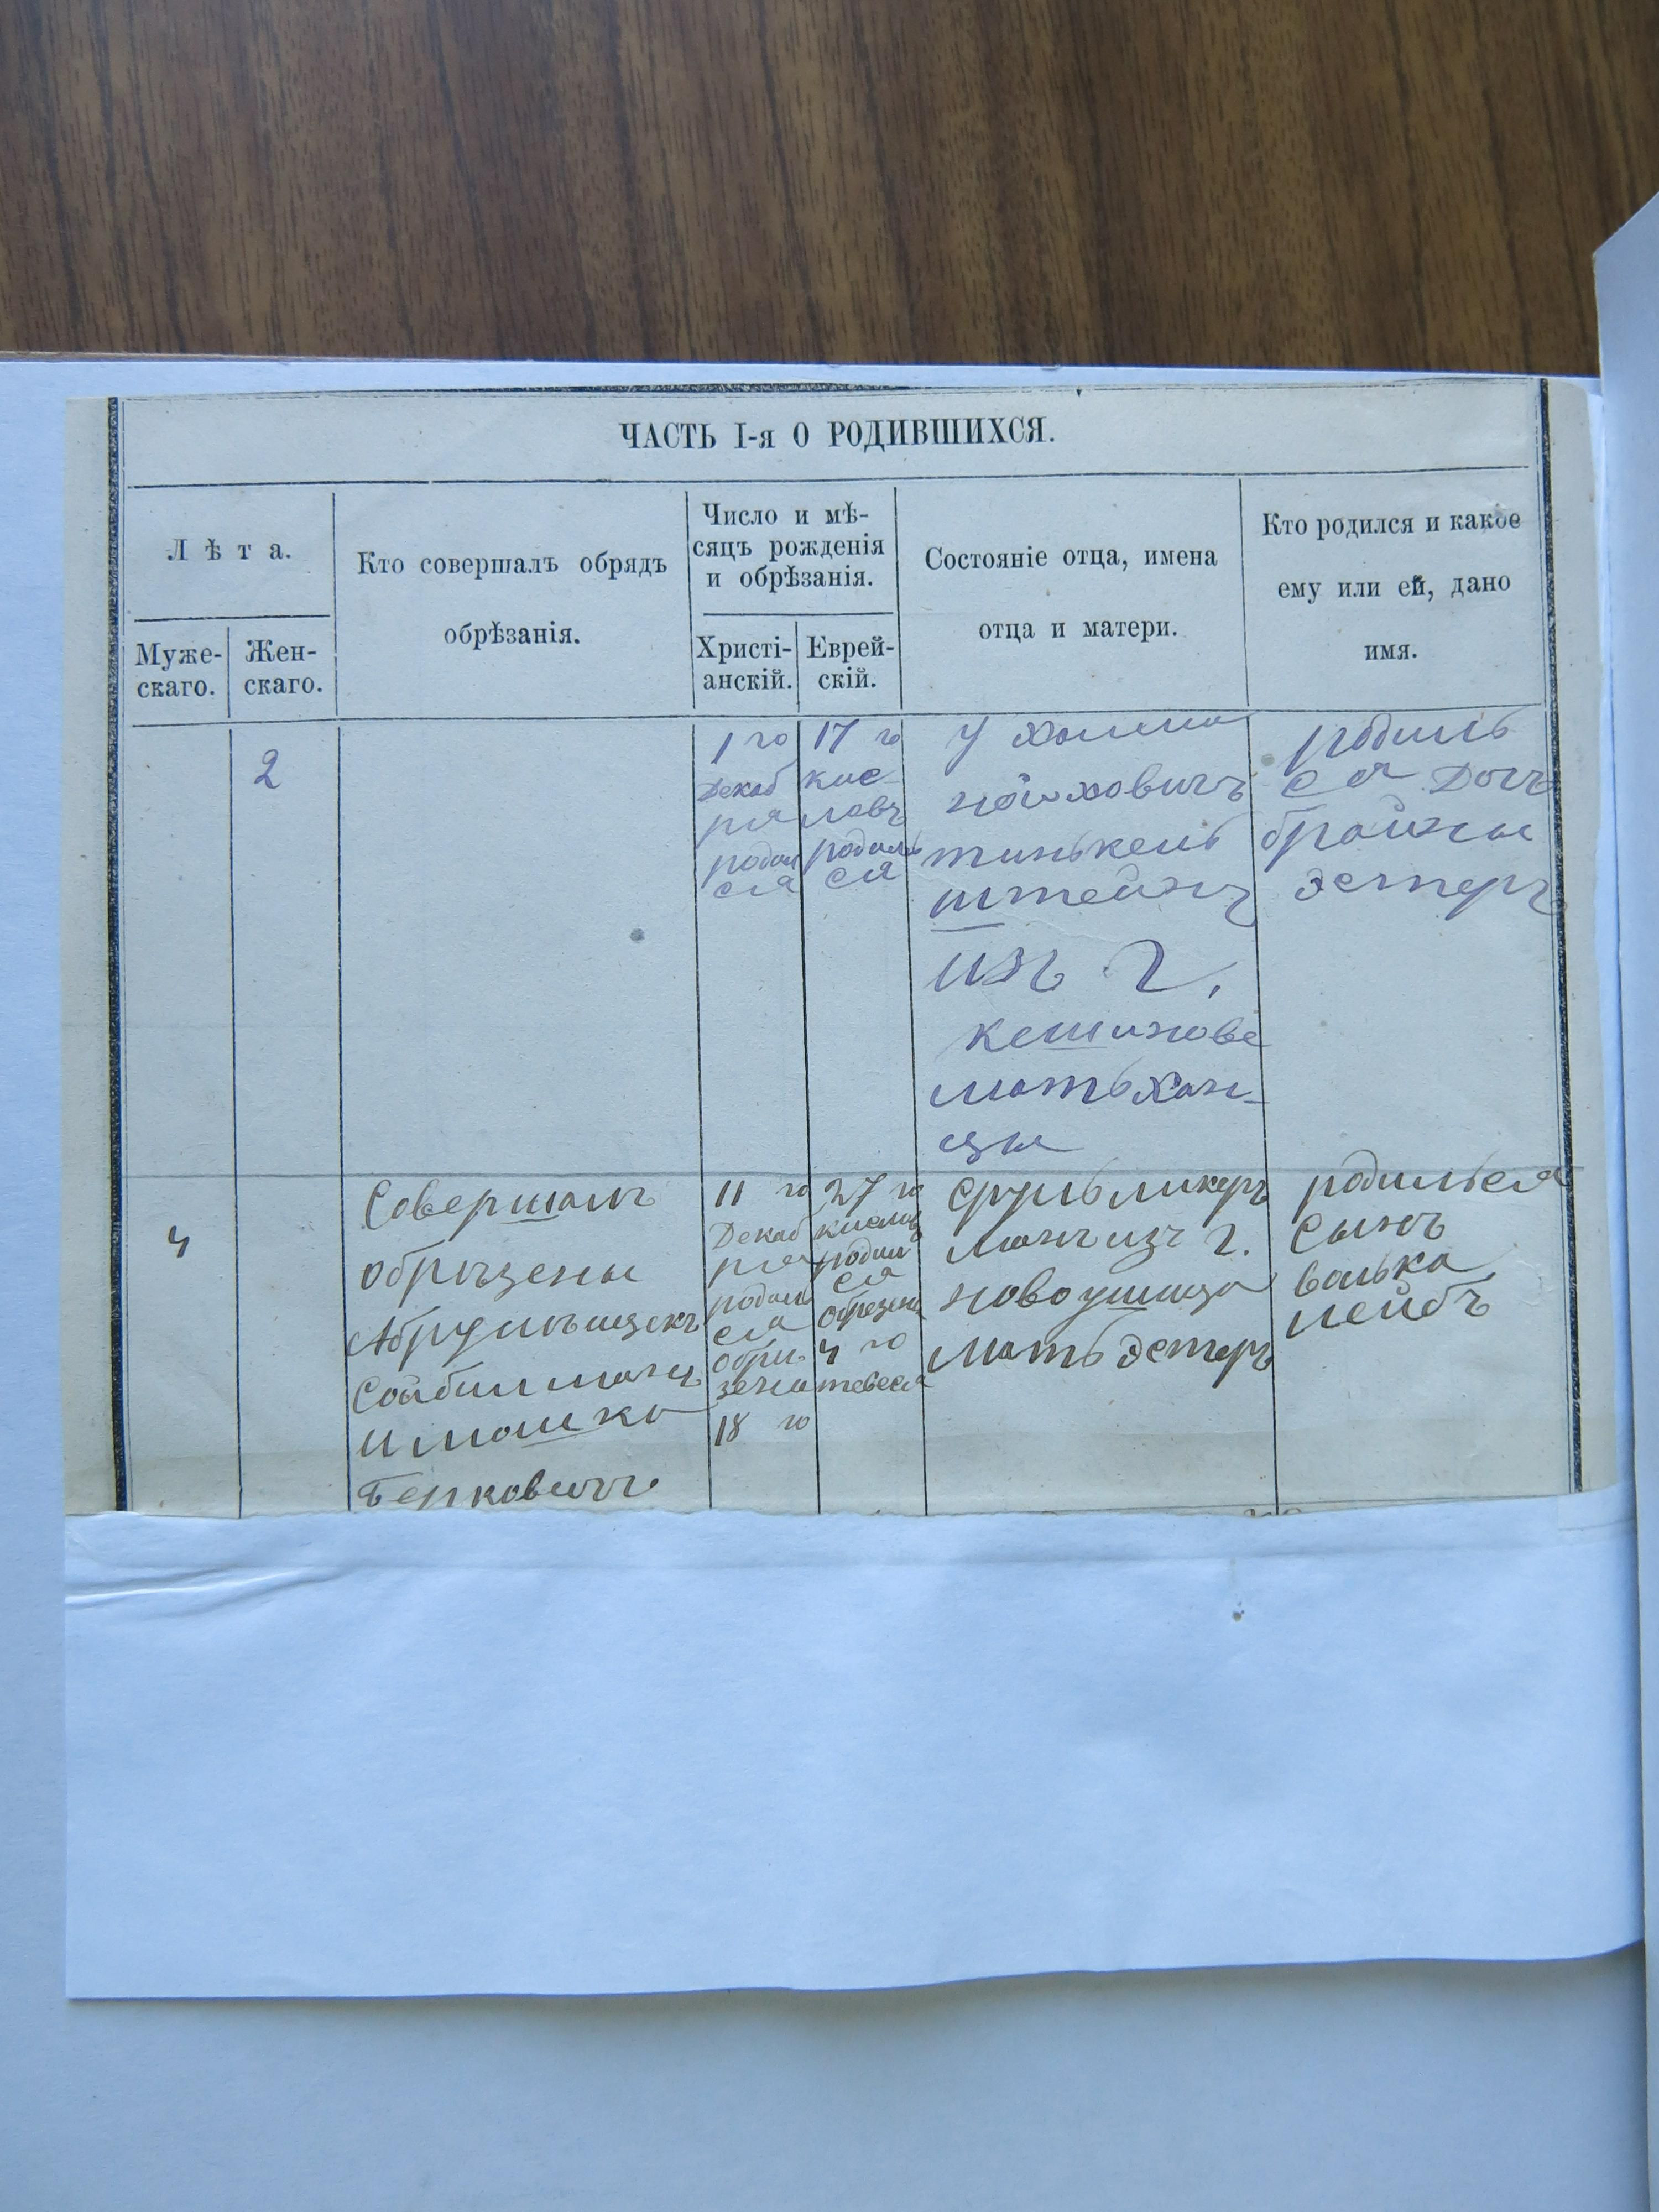 ЧАСТЬ I-я О РОДИВШИХСЯ.
Лѣта.
Муже-
скаго.
Жен-
скаго.
Кто совершалъ обрядъ
обрѣзанія.
Число и мѣ-
сяцъ рожденія
и обрѣзанія.
Христі-
анскій.
Еврей-
скій.
Состояніе отца, имена
отца и матери.
Кто родился и какое
ему или ей, дано
имя.
2
1 го
Декаб
ря
родил
ся
17 го
кис-
ловъ
родиль
ся
У
новховичъ
тинькель
штейнъ
изъ г.
кешинове
мать Хан-
цы
родиль
ся Дочъ
брайны
эстеръ
4
Совершалъ
обрѣзены
Абрумъ ицекъ
и мошко
Берковичъ
11 го
Декаб
ря
родил
ся
обри
зены
18 го
27 го
кислов
родил
ся
обрезены
4 го
тевеся
Сруль ликер
манъ изъ г.
новоушица
Мать эстеръ
родилься
сынъ
волька
лейбъ